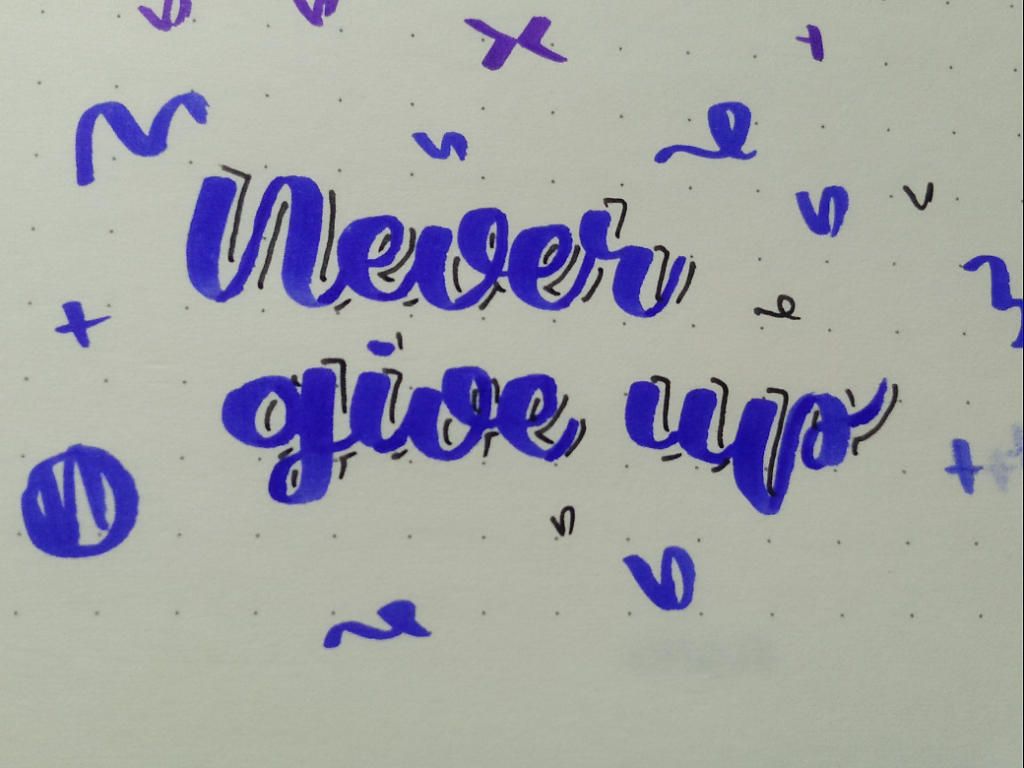 Never
give up